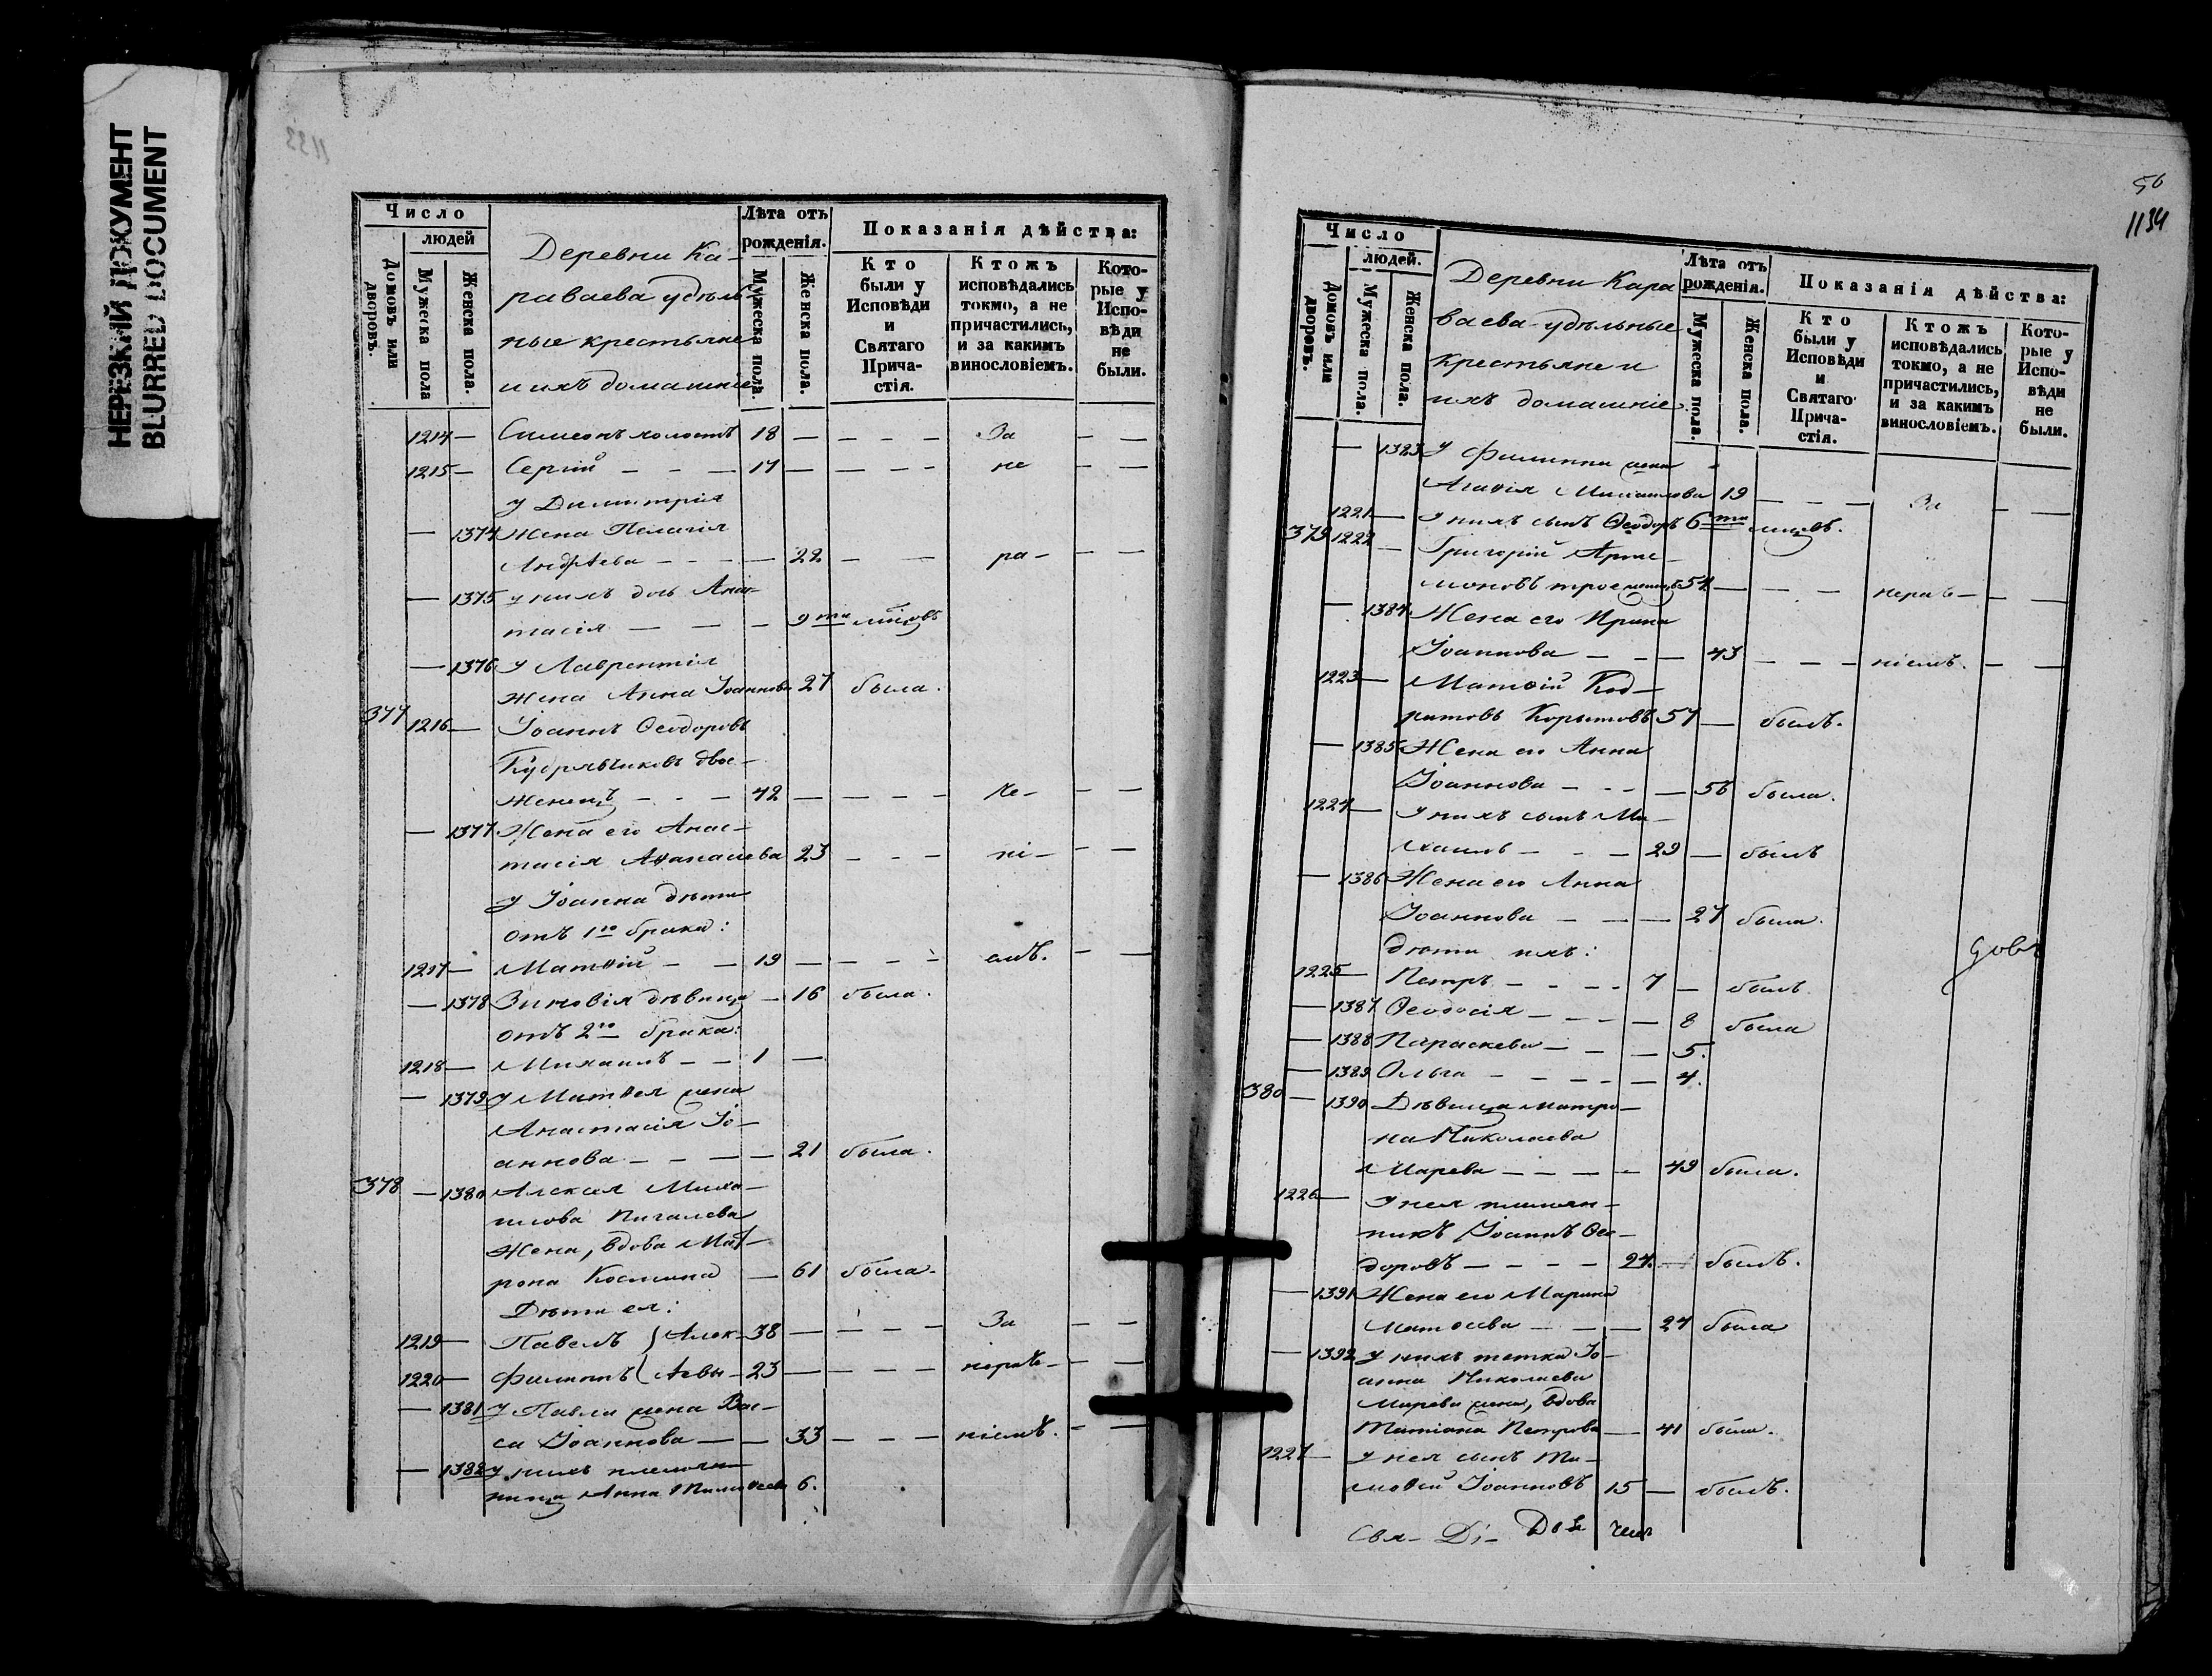 НЕРЕЗКИЙ ДОКУМЕНТ
BLURRED DOCUMENT
1133
Число
людей
Домовъ или дворовъ.
Мужеска пола
Женска пола.
Деревни Ка-
раваева удѣль
ные крестьяне
и ихъ домашніе
Лѣта отъ рожденія.
Мужеска пола.
Женска пола.
Показанія дѣйства:
Кто были у Исповѣди и Святаго Прича-стія.
Ктожъ исповѣдались токмо, а не причастились, и за какимъ винословіемъ.
Кото-рые у Испо-вѣди не были.
1214 — Симеонъ холостъ 18 — — — — За — —
1215 — Сергій — — — 17 — — — — не — —
у Димитрія
— 1374 жена Пелагія
Андреева — — — — 22 — — ра- — —
— 1375 у нихъ дочь Анас-
тасія — — — — 9ти мѣсяцовъ
— 1376 У Лаврентія
жена Анна Іоаннова 27 была.
377 1216 — Іоаннъ Ѳеодоровъ
Кудрявчиковъ двое-
женецъ — — — 42 — — — — че- — —
— 1377 Жена его Анас-
тасія Аѳанасьева 23 — — — ні- — —
у Іоанна дѣти
отъ 1го брака:
1217 — Матѳій — — 19 — — — — емъ. — —
— 1378 Зиновія дѣвица — 16 была.
отъ 2го брака:
1218 — Михаилъ — — 1 —
— 1379 у Матѳея жена
Анастасія Іо-
аннова — — — — 21 была.
378 — 1380 Алексея Миха-
илова Пигалева
Жена, вдова Мат-
рона Космина — 61 была.
Дѣти ея:
1219 — Павелъ } Алек- 38 — — — — За — —
1220 — Филиппъ { ѣевы — 23 — — — — нераче- — —
— 1381 У Павла жена Вас-
са Іоаннова — — 33 — — — ніемъ. — —
— 1382 у нихъ племян
ница Анна Тимоѳеева 6.
56
1134
Число
людей.
Домовъ или дворовъ.
Мужеска пола.
Женска пола.
Деревни Кара
ваева удѣльные
крестьяне и
ихъ домашніе
Лѣта отъ рожденія.
Мужеска пола.
Женска пола.
Показанія дѣйства:
Кто были у Исповѣди и Святаго Прича-стія.
Ктожъ исповѣдались токмо, а не причастились, и за какимъ винословіемъ.
Кото-рые у Испо-вѣди не были.
— 1323 У Филиппа жена
Агаѳія Михаилова 19 — — — За — —
1221 — У нихъ сынъ Ѳеодоръ 6ти мѣсяцовъ.
379 1222 — Григорій Арте-
моновъ троеженецъ 54 — — — нераче- — —
— 1384 Жена его Ирина
Іоаннова — — — 43 — — — ніемъ. — —
1223 — Матѳій Код-
ратовъ Корытовъ 57 — былъ.
— 1385 Жена его Анна
Іоаннова — — — — 56 была.
1224 — У нихъ сынъ Ми-
хаилъ — — — 29 — былъ
— 1386 Жена его Анна
Іоаннова — — — 27 была.
дѣти ихъ:
1225 — Петръ — — — — 7 — былъ
— 1387 Ѳеодосія — — — — 8 была
— 1388 Параскева — — — 5.
— 1389 Ольга — — — — — 4.
380 — 1390 Дѣвица Матро-
на Николаева
Марева — — — — 49 была.
1226 — У нея племян-
никъ Іоаннъ Ѳео-
доровъ — — — — 24. — былъ.
— 1391 Жена его Марина
Матѳеева — — — 24 была
— 1392 у нихъ тетка Іо-
анна Николаева
Марева жена, вдова
Татіана Петрова — — 41 была.
1227 — у нея сынъ Ти-
моѳей Іоанновъ 15 — былъ.